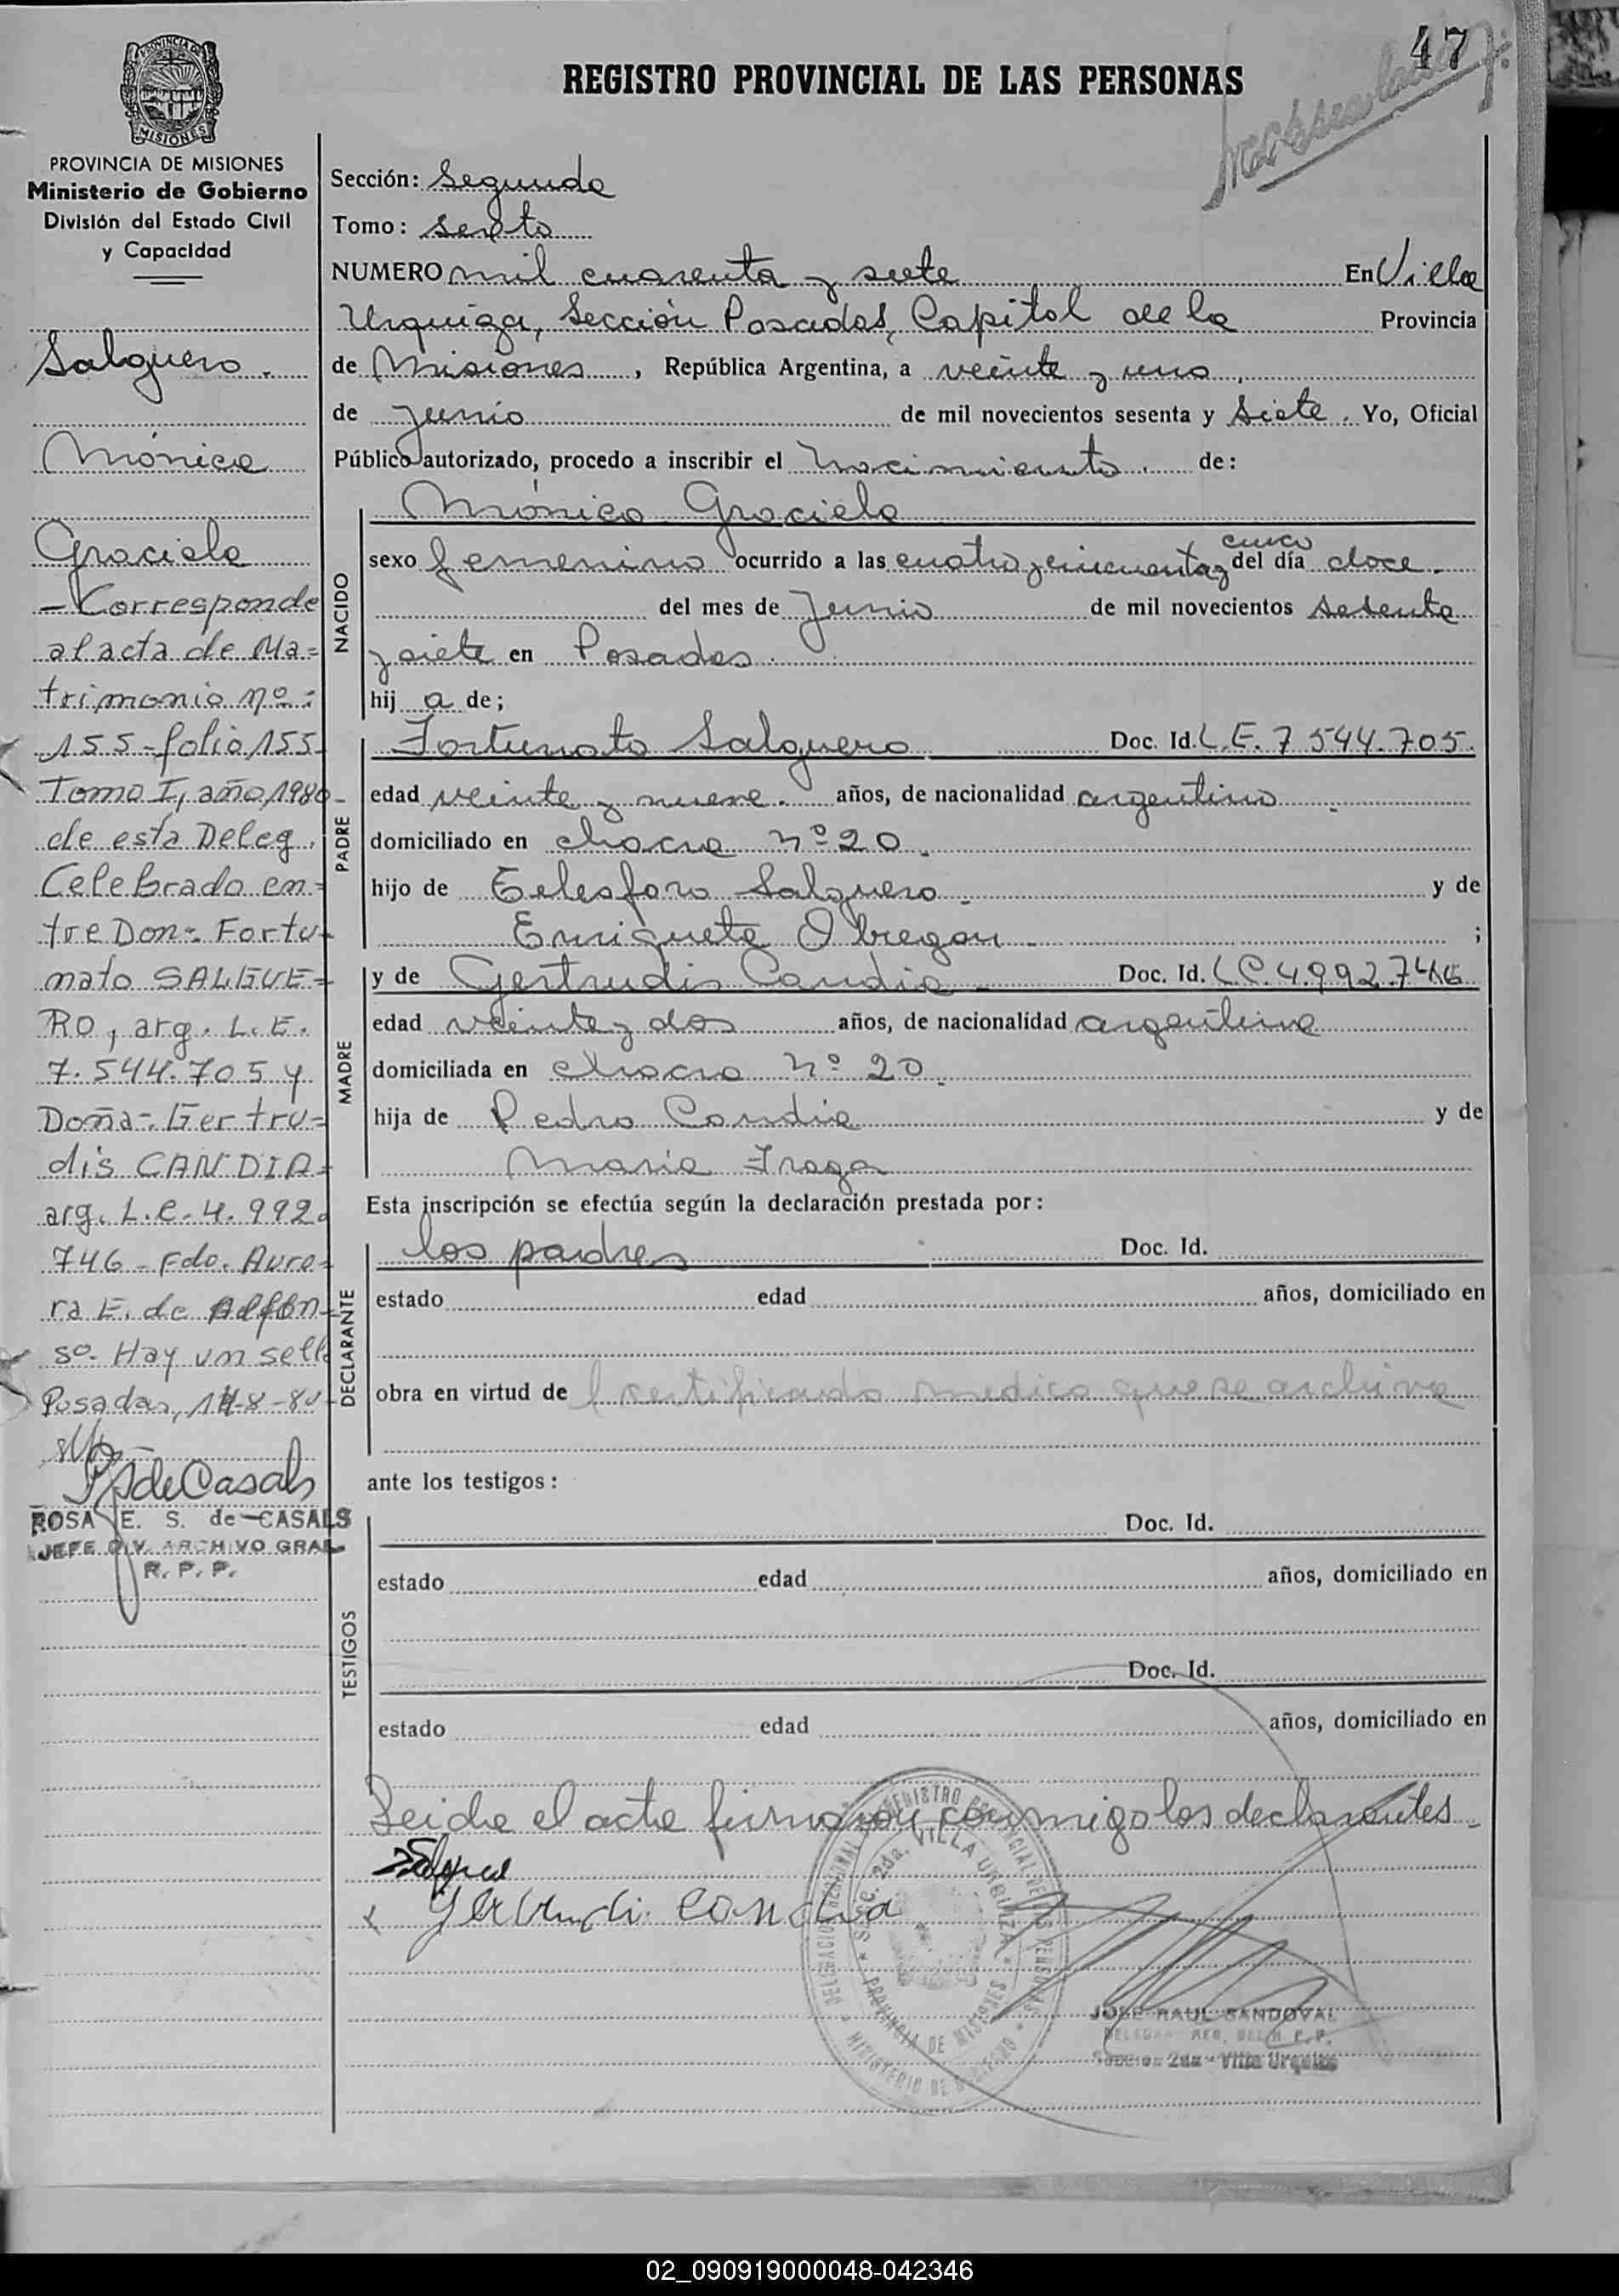 47
REGISTRO PROVINCIAL DE LAS PERSONAS
PROVINCIA DE
MISIONES
PROVINCIA DE MISIONES
Ministerio de Gobierno
División del Estado Civil
y Capacidad
Salguero.
Mónica
Graciela
- Corresponde
al acta de Ma=
trimonio nº:
155-folio 155
Tomo I, año 1980-
de esta Deleg.
Celebrado en=
tre Don: Fortu-
nato SALGUE=
RO, arg. L.E.
7.544.705 y
Doña: Gertru-
dis CANDIA=
arg. L.C. 4.992.
746 - Fdo. Auro=
ra E. de Alfon-
so- Hay un sello
Posadas, 14-8-80
R S de Casals
ROSA E. S. de CASALS
JEFE DIV. ARCHIVO GRAL
R. P. P.
Sección: Segunda
Tomo: sexto
NUMERO mil cuarenta y siete En Villa
Urquiza, Sección Posadas, Capital de la Provincia
de Misiones, República Argentina, a veinte y uno,
de junio de mil novecientos sesenta y siete. Yo, Oficial
Público autorizado, procedo a inscribir el nacimiento. de:
NACIDO
Mónica Graciela
sexo femenino ocurrido a las cuatro y cincuenta y cinco del día doce.
del mes de Junio de mil novecientos sesenta
y siete en Posadas.
hij a de;
PADRE
Fortunato Salguero Doc. Id. L.E. 7.544.705.
edad veinte y nueve. años, de nacionalidad argentino.
domiciliado en chacra nº 20.
hijo de Telesforo Salguero. y de
Enriqueta Obregon ;
MADRE
y de Gertrudis Candia Doc. Id. L.C. 4.992.746
edad veinte y dos años, de nacionalidad argentina
domiciliada en chacra nº 20.
hija de Pedro Candia y de
Maria Fraga
Esta inscripción se efectúa según la declaración prestada por:
DECLARANTE
los padres Doc. Id.
estado edad años, domiciliado en
obra en virtud de l certificado medico que se archiva
ante los testigos:
TESTIGOS
Doc. Id.
estado edad años, domiciliado en
Doc. Id.
estado edad años, domiciliado en
Leida el acta firmaron conmigo los declarantes.
x Gertrudi candia
DELEGACION REGIONAL REGISTRO PROVINCIAL DE LAS PERSONAS
Secc. 2da. VILLA URQUIZA
PROVINCIA DE MISIONES
MINISTERIO DE GOBIERNO
JOSE RAUL SANDOVAL
Sección 2da - Villa Urquiza
02_090919000048-042346